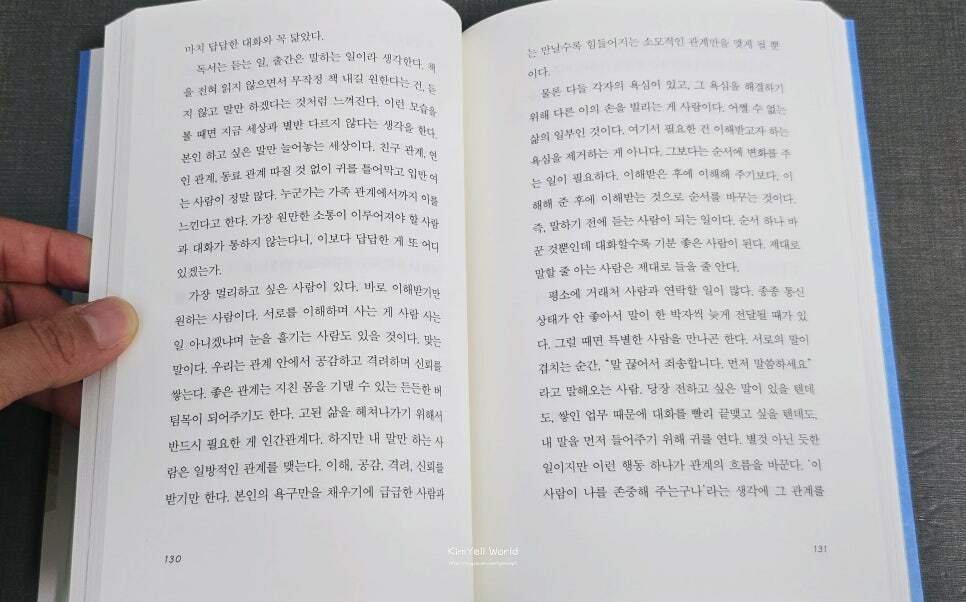 마치 답답한 대화와 꼭 닮았다.
독서는 듣는 일, 출간은 말하는 일이라 생각한다. 책
을 전혀 읽지 않으면서 무작정 책 내길 원한다는 건, 듣
지 않고 말만 하겠다는 것처럼 느껴진다. 이런 모습을
볼 때면 지금 세상과 별반 다르지 않다는 생각을 한다.
본인 하고 싶은 말만 늘어놓는 세상이다. 친구 관계, 연
인 관계, 동료 관계 따질 것 없이 귀를 틀어막고 입만 여
는 사람이 정말 많다. 누군가는 가족 관계에서까지 이를
느낀다고 한다. 가장 원만한 소통이 이루어져야 할 사람
과 대화가 통하지 않는다니, 이보다 답답한 게 또 어디
있겠는가.
가장 멀리하고 싶은 사람이 있다. 바로 이해받기만
원하는 사람이다. 서로를 이해하며 사는 게 사람 사는
일 아니겠냐며 눈을 흘기는 사람도 있을 것이다. 맞는
말이다. 우리는 관계 안에서 공감하고 격려하며 신뢰를
쌓는다. 좋은 관계는 지친 몸을 기댈 수 있는 든든한 버
팀목이 되어주기도 한다. 고된 삶을 헤쳐나가기 위해서
반드시 필요한 게 인간관계다. 하지만 내 말만 하는 사
람은 일방적인 관계를 맺는다. 이해, 공감, 격려, 신뢰를
받기만 한다. 본인의 욕구만을 채우기에 급급한 사람과
130
는 만날수록 힘들어지는 소모적인 관계만을 맺게 될 뿐
이다.
물론 다들 각자의 욕심이 있고, 그 욕심을 해결하기
위해 다른 이의 손을 빌리는 게 사람이다. 어쩔 수 없는
삶의 일부인 것이다. 여기서 필요한 건 이해받고자 하는
욕심을 제거하는 게 아니다. 그보다는 순서에 변화를 주
는 일이 필요하다. 이해받은 후에 이해해 주기보다, 이
해해 준 후에 이해받는 것으로 순서를 바꾸는 것이다.
즉, 말하기 전에 듣는 사람이 되는 일이다. 순서 하나 바
꾼 것뿐인데 대화할수록 기분 좋은 사람이 된다. 제대로
말할 줄 아는 사람은 제대로 들을 줄 안다.
평소에 거래처 사람과 연락할 일이 많다. 종종 통신
상태가 안 좋아서 말이 한 박자씩 늦게 전달될 때가 있
다. 그럴 때면 특별한 사람을 만나곤 한다. 서로의 말이
겹치는 순간, “말 끊어서 죄송합니다. 먼저 말씀하세요”
라고 말해오는 사람. 당장 전하고 싶은 말이 있을 텐데
도, 쌓인 업무 때문에 대화를 빨리 끝맺고 싶을 텐데도,
내 말을 먼저 들어주기 위해 귀를 연다. 별것 아닌 듯한
일이지만 이런 행동 하나가 관계의 흐름을 바꾼다. ‘이
사람이 나를 존중해 주는구나’라는 생각에 그 관계를
131
KimYell World